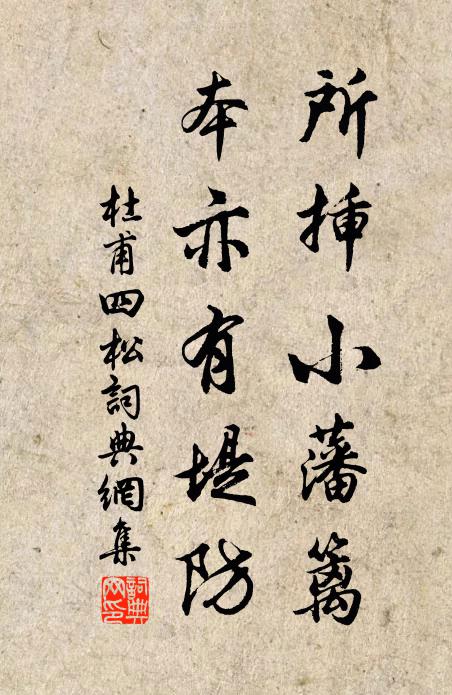 所插小藩籬
本亦有堤防
杜甫四松詞典網集
詞典網印